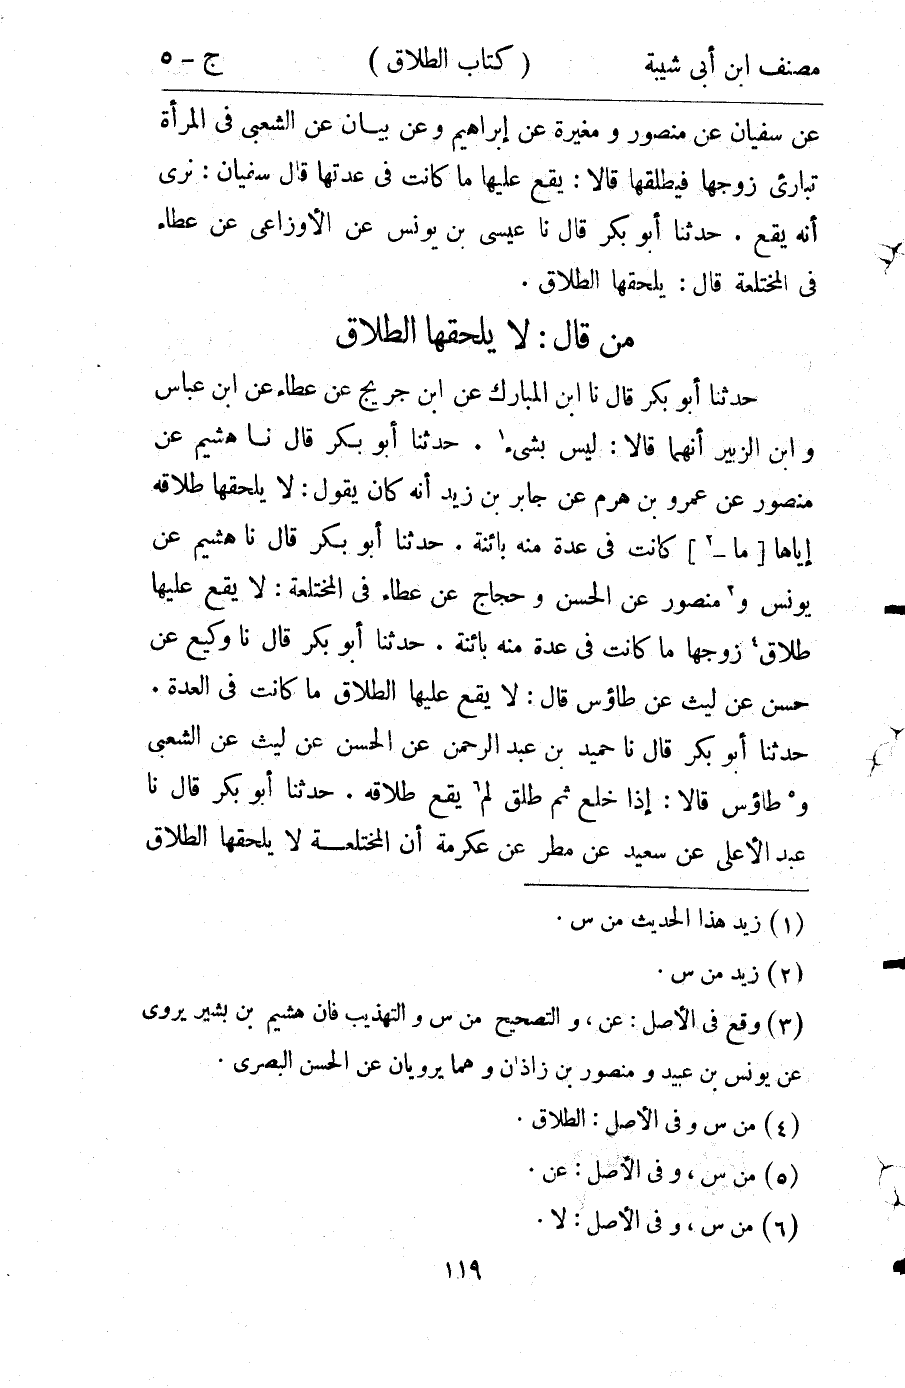 مصنف ابن أبى شيبة ( كتاب الطلاق ) ج - ٥
عن سفيان عن منصور و مغيرة عن إبراهيم و عن بيـــان عن الشعبى فى المرأة
تبارئ زوجها فيطلقها قالا : يقع عليها ما كانت فى عدتها قال سفيان : نرى
أنه يقع . حدثنا أبو بكر قال نا عيسى بن يونس عن الأوزاعى عن عطاء
فى المختلعة قال : يلحقها الطلاق .
من قال : لا يلحقها الطلاق
حدثنا أبو بكر قال نا ابن المبارك عن ابن جريج عن عطاء عن ابن عباس
و ابن الزبير أنهما قالا : ليس بشىء ١ . حدثنا أبو بـــكر قال نـــا هشيم عن
منصور عن عمرو بن هرم عن جابر بن زيد أنه كان يقول : لا يلحقها طلاقه
إياها [ ما - ٢ ] كانت فى عدة منه بائنة . حدثنا أبو بـــكر قال نا هشيم عن
يونس و ٣ منصور عن الحسن و حجاج عن عطاء فى المختلعة : لا يقع عليها
طلاق ٤ زوجها ما كانت فى عدة منه بائنة . حدثنا أبو بكر قال نا وكيع عن
حسن عن ليث عن طاؤس قال : لا يقع عليها الطلاق ما كانت فى العدة .
حدثنا أبو بكر قال نا حميد بن عبد الرحمن عن الحسن عن ليث عن الشعبى
و ٥ طاؤس قالا : إذا خلع ثم طلق لم ٦ يقع طلاقه . حدثنا أبو بكر قال نا
عبد الأعلى عن سعيد عن مطر عن عكرمة أن المختلعـــة لا يلحقها الطلاق
(١) زيد هذا الحديث من س .
(٢) زيد من س .
(٣) وقع فى الأصل : عن ، و التصحيح من س و التهذيب فان هشيم بن بشير يروى
عن يونس بن عبيد و منصور بن زاذان و هما يرويان عن الحسن البصرى .
(٤) من س و فى الأصل : الطلاق .
(٥) من س ، و فى الأصل : عن .
(٦) من س ، و فى الأصل : لا .
١١٩